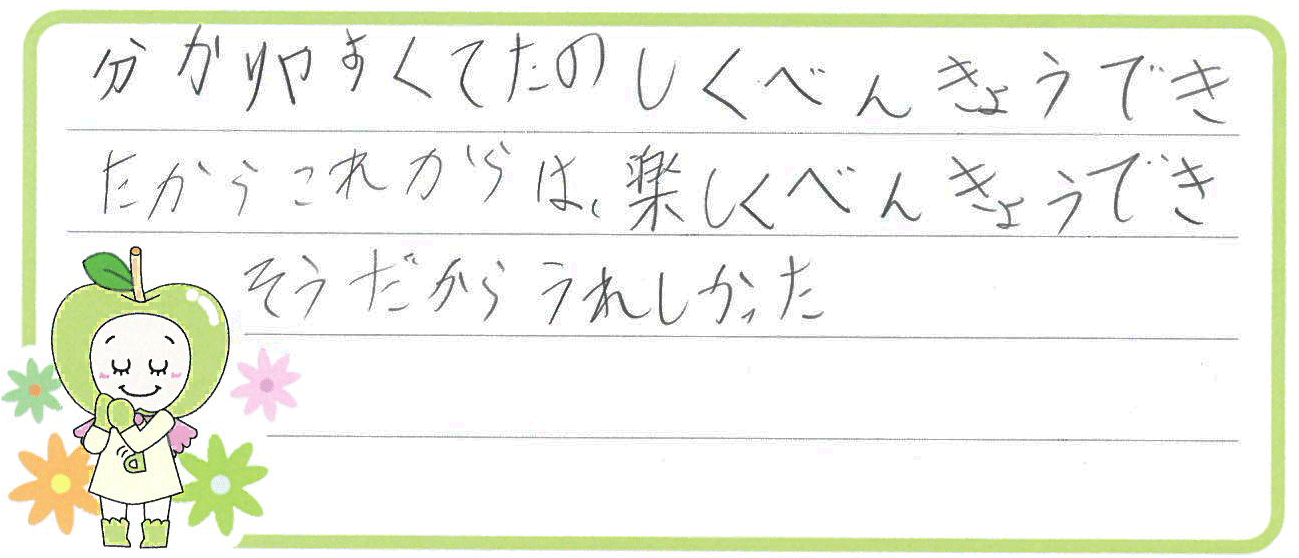 分かりやすくてたのしくべんきょうでき
たからこれからは、楽しくべんきょうでき
そうだからうれしかった